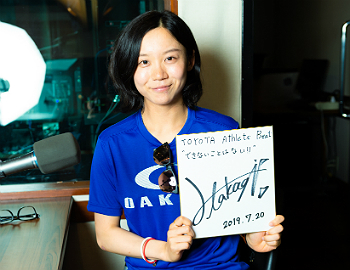 TOYOTA Athlete Beat
"できないことはない!!"
H.takagi
2019.7.20
OAK